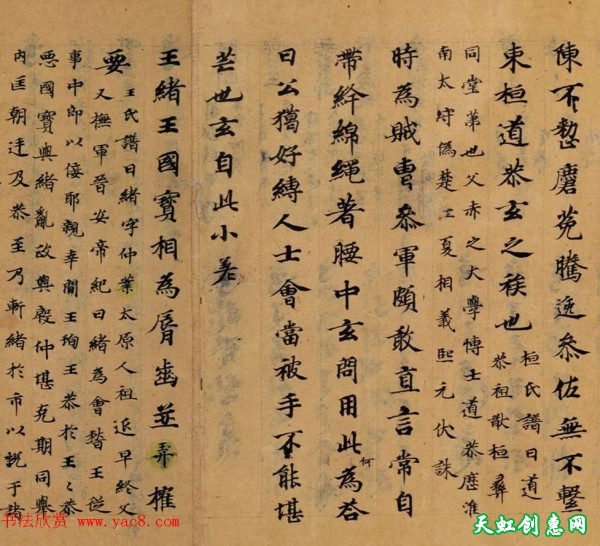 陳不整麏菟騰逸叅佐無不繫
束桓道恭玄之族也
桓氏譜曰道
恭祖猷桓彝
同堂弟也父赤之大學博士道恭歷淮
南太守偽楚江夏相義熙元伏誅
時為賊曹叅軍頗敢直言常自
帶絳綿繩著腰中玄問用此何為答
曰公獦好縛人士會當被手不能堪
芒也玄自此小差
王緒王國寶相為脣齒並弄權
要
王氏譜曰緒字仲業太原人祖延早終父
乂撫軍晉安帝紀曰緒為會稽王從
事中郎以佞耶親幸間王珣王恭於王〻恭
惡國寶與緒亂政與殷仲堪克期同舉
內匡朝廷及恭至乃斬緒於市以說于諸
书法欣赏 www.yac8.com
天虹创惠网